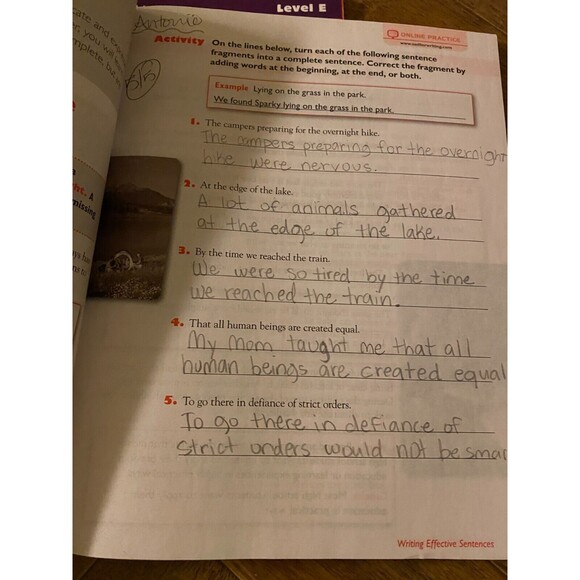 Level E
Antonio
ONLINE PRACTICE
www.
Activity On the lines below, turn each of the following sentence
fragments into a complete sentence. Correct the fragment by
adding words at the beginning, at the end, or both.
5/5
Example Lying on the grass in the park.
We found Sparky lying on the grass in the park.
1. The campers preparing for the overnight hike.
The campers preparing for the overnight
hike were nervous.
2. At the edge of the lake.
A lot of animals gathered
at the edge of the lake.
3. By the time we reached the train.
We were so tired by the time
we reached the train.
4. That all human beings are created equal.
My mom taught me that all
human beings are created equal
5. To go there in defiance of strict orders.
To go there in defiance of
strict orders would not be smar
Writing Effective Sentences